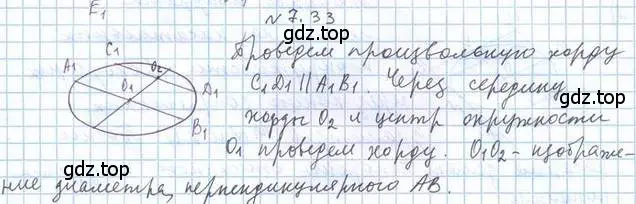 E₁
№7.33
C₁ O₂
A₁ O₁ D₁
B₁
Проведем произвольную хорду
C₁D₁ || A₁B₁. Через середину
хорды O₂ и центр окружности
O₁ проведем хорду. O₁O₂ - изображе-
ние диаметра, перпендикулярного AB.
gdz.top